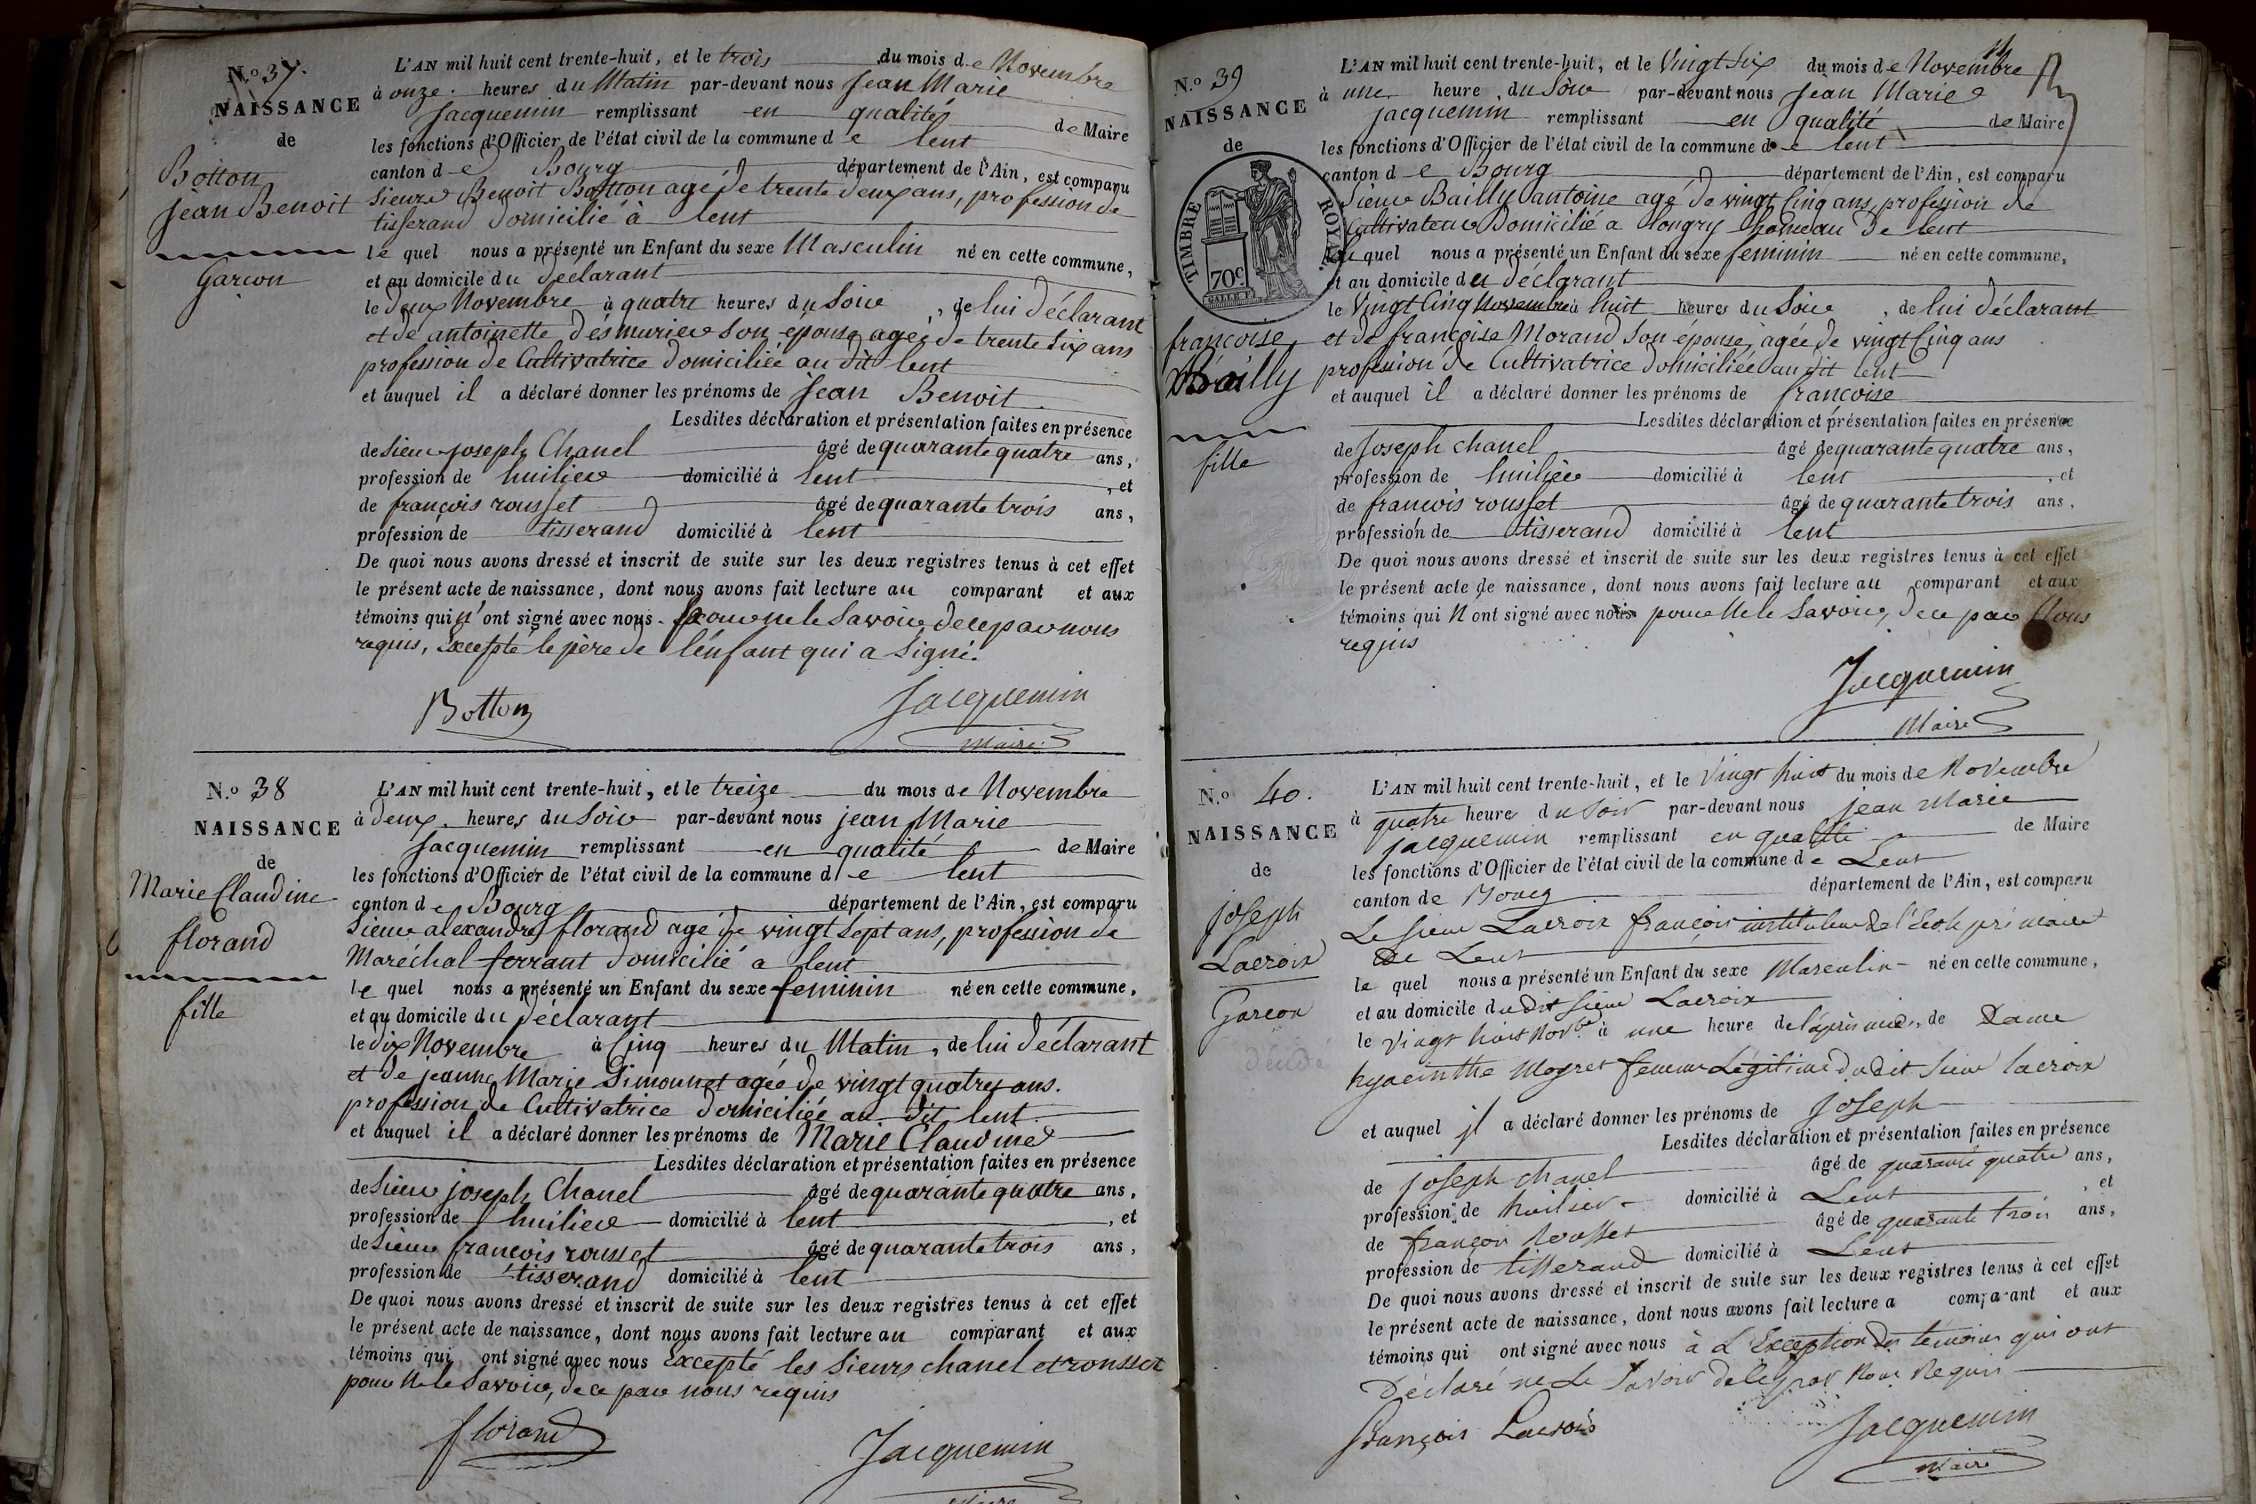 N.o 37.
NAISSANCE
de
Botton
Jean Benoit
Garcon
L'AN mil huit cent trente-huit, et le trois du mois de Novembre
à onze heures du Matin par-devant nous Jean Marie
Jacquemin remplissant en qualité de Maire
les fonctions d'Officier de l'état civil de la commune de lent
canton de Bourg département de l'Ain, est comparu
Sieur Benoit Botton agé de trente deux ans, profession de
tisserand domicilié à lent
le quel nous a présenté un Enfant du sexe Masculin né en cette commune,
et au domicile du déclarant
le deux Novembre à quatre heures du Soir, de lui déclarant
et de antoinette desmurier son epouse agée de trente Six ans
profession de Cultivatrice domiciliée au dit lent
et auquel il a déclaré donner les prénoms de Jean Benoit
Lesdites déclaration et présentation faites en présence
de Sieur joseph Chanel âgé de quarante quatre ans,
profession de huilier domicilié à lent, et
de françois rousset âgé de quarante trois ans,
profession de tisserand domicilié à lent
De quoi nous avons dressé et inscrit de suite sur les deux registres tenus à cet effet
le présent acte de naissance, dont nous avons fait lecture au comparant et aux
témoins qui n'ont signé avec nous pour ne le Savoir, de ce par nous
requis, Excepté le père de l'enfant qui a Signé.
Botton Jacquemin
Maire
N.o 38
NAISSANCE
de
Marie Claudine
florand
fille
L'AN mil huit cent trente-huit, et le treize du mois de Novembre
à deux heures du Soir par-devant nous jean Marie
Jacquemin remplissant en qualité de Maire
les fonctions d'Officier de l'état civil de la commune de lent
canton de Bourg département de l'Ain, est comparu
Sieur alexandre florand agé de vingt Sept ans, profession de
Maréchal ferrant domicilié a lent
le quel nous a présenté un Enfant du sexe feminin né en cette commune,
et au domicile du déclarant
le dix Novembre à Cinq heures du Matin, de lui déclarant
et de jeanne Marie Simonnet agée de vingt quatre ans.
profession de Cultivatrice domiciliée au dit lent
et auquel il a déclaré donner les prénoms de Marie Claudine
Lesdites déclaration et présentation faites en présence
de Sieur joseph Chanel âgé de quarante quatre ans,
profession de huilier domicilié à lent, et
de Sieur francois rousset âgé de quarante trois ans,
profession de tisserand domicilié à lent
De quoi nous avons dressé et inscrit de suite sur les deux registres tenus à cet effet
le présent acte de naissance, dont nous avons fait lecture au comparant et aux
témoins qui ont signé avec nous Excepté les Sieurs chanel et rousset
pour Ne le Savoir, de ce par nous requis
florand Jacquemin
Maire
N.o 39
NAISSANCE
de
TIMBRE ROYAL.
70c.
francoise
Bailly
fille
L'AN mil huit cent trente-huit, et le Vingt Six du mois de Novembre
à une heure du Soir par-devant nous Jean Marie
jacquemin remplissant en qualité de Maire
les fonctions d'Officier de l'état civil de la commune de lent
canton de Bourg département de l'Ain, est comparu
Sieur Bailly antoine agé de vingt Cinq ans, profession de
Cultivateur Domicilié a longry hameau de lent
le quel nous a présenté un Enfant du sexe feminin né en cette commune,
et au domicile du déclarant
le Vingt Cinq Novembre à huit heures du Soir, de lui déclarant
et de françoise Morand Son épouse, agée de vingt Cinq ans
profession de Cultivatrice domiciliée au dit lent
et auquel il a déclaré donner les prénoms de francoise
Lesdites déclaration et présentation faites en présence
de Joseph chanel âgé de quarante quatre ans,
profession de huilier domicilié à lent, et
de francois rousset âgé de quarante trois ans,
profession de tisserand domicilié à lent
De quoi nous avons dressé et inscrit de suite sur les deux registres tenus à cet effet
le présent acte de naissance, dont nous avons fait lecture au comparant et aux
témoins qui N ont signé avec nous pour Ne le Savoir, de ce par Nous
requis
Jacquemin
Maire
N.o 40.
NAISSANCE
de
joseph
Lacroix
Garcon
L'AN mil huit cent trente-huit, et le Vingt huit du mois de Novembre
à quatre heure du Soir par-devant nous jean Marie
jacquemin remplissant en qualité de Maire
les fonctions d'Officier de l'état civil de la commune de Lent
canton de Bourg département de l'Ain, est comparu
Le Sieur Lacroix françois instituteur de l'école primaire
de Lent
le quel nous a présenté un Enfant du sexe Masculin né en cette commune,
et au domicile du dit Sieur Lacroix
le Vingt huit Novbre à une heure de l'après midi, de Dame
hyacinthe Moyret femme Légitime du dit Sieur lacroix
et auquel jl a déclaré donner les prénoms de Joseph
Lesdites déclaration et présentation faites en présence
de joseph chanel âgé de quarante quatre ans,
profession de huilier domicilié à Lent, et
de françois Rousset âgé de quarante trois ans,
profession de tisserand domicilié à Lent
De quoi nous avons dressé et inscrit de suite sur les deux registres tenus à cet effet
le présent acte de naissance, dont nous avons fait lecture a comparant et aux
témoins qui ont signé avec nous à L'Exception des témoins qui ont
Déclaré ne Le Savoir de ce par Nous Requis
François Lacroix Jacquemin
Maire